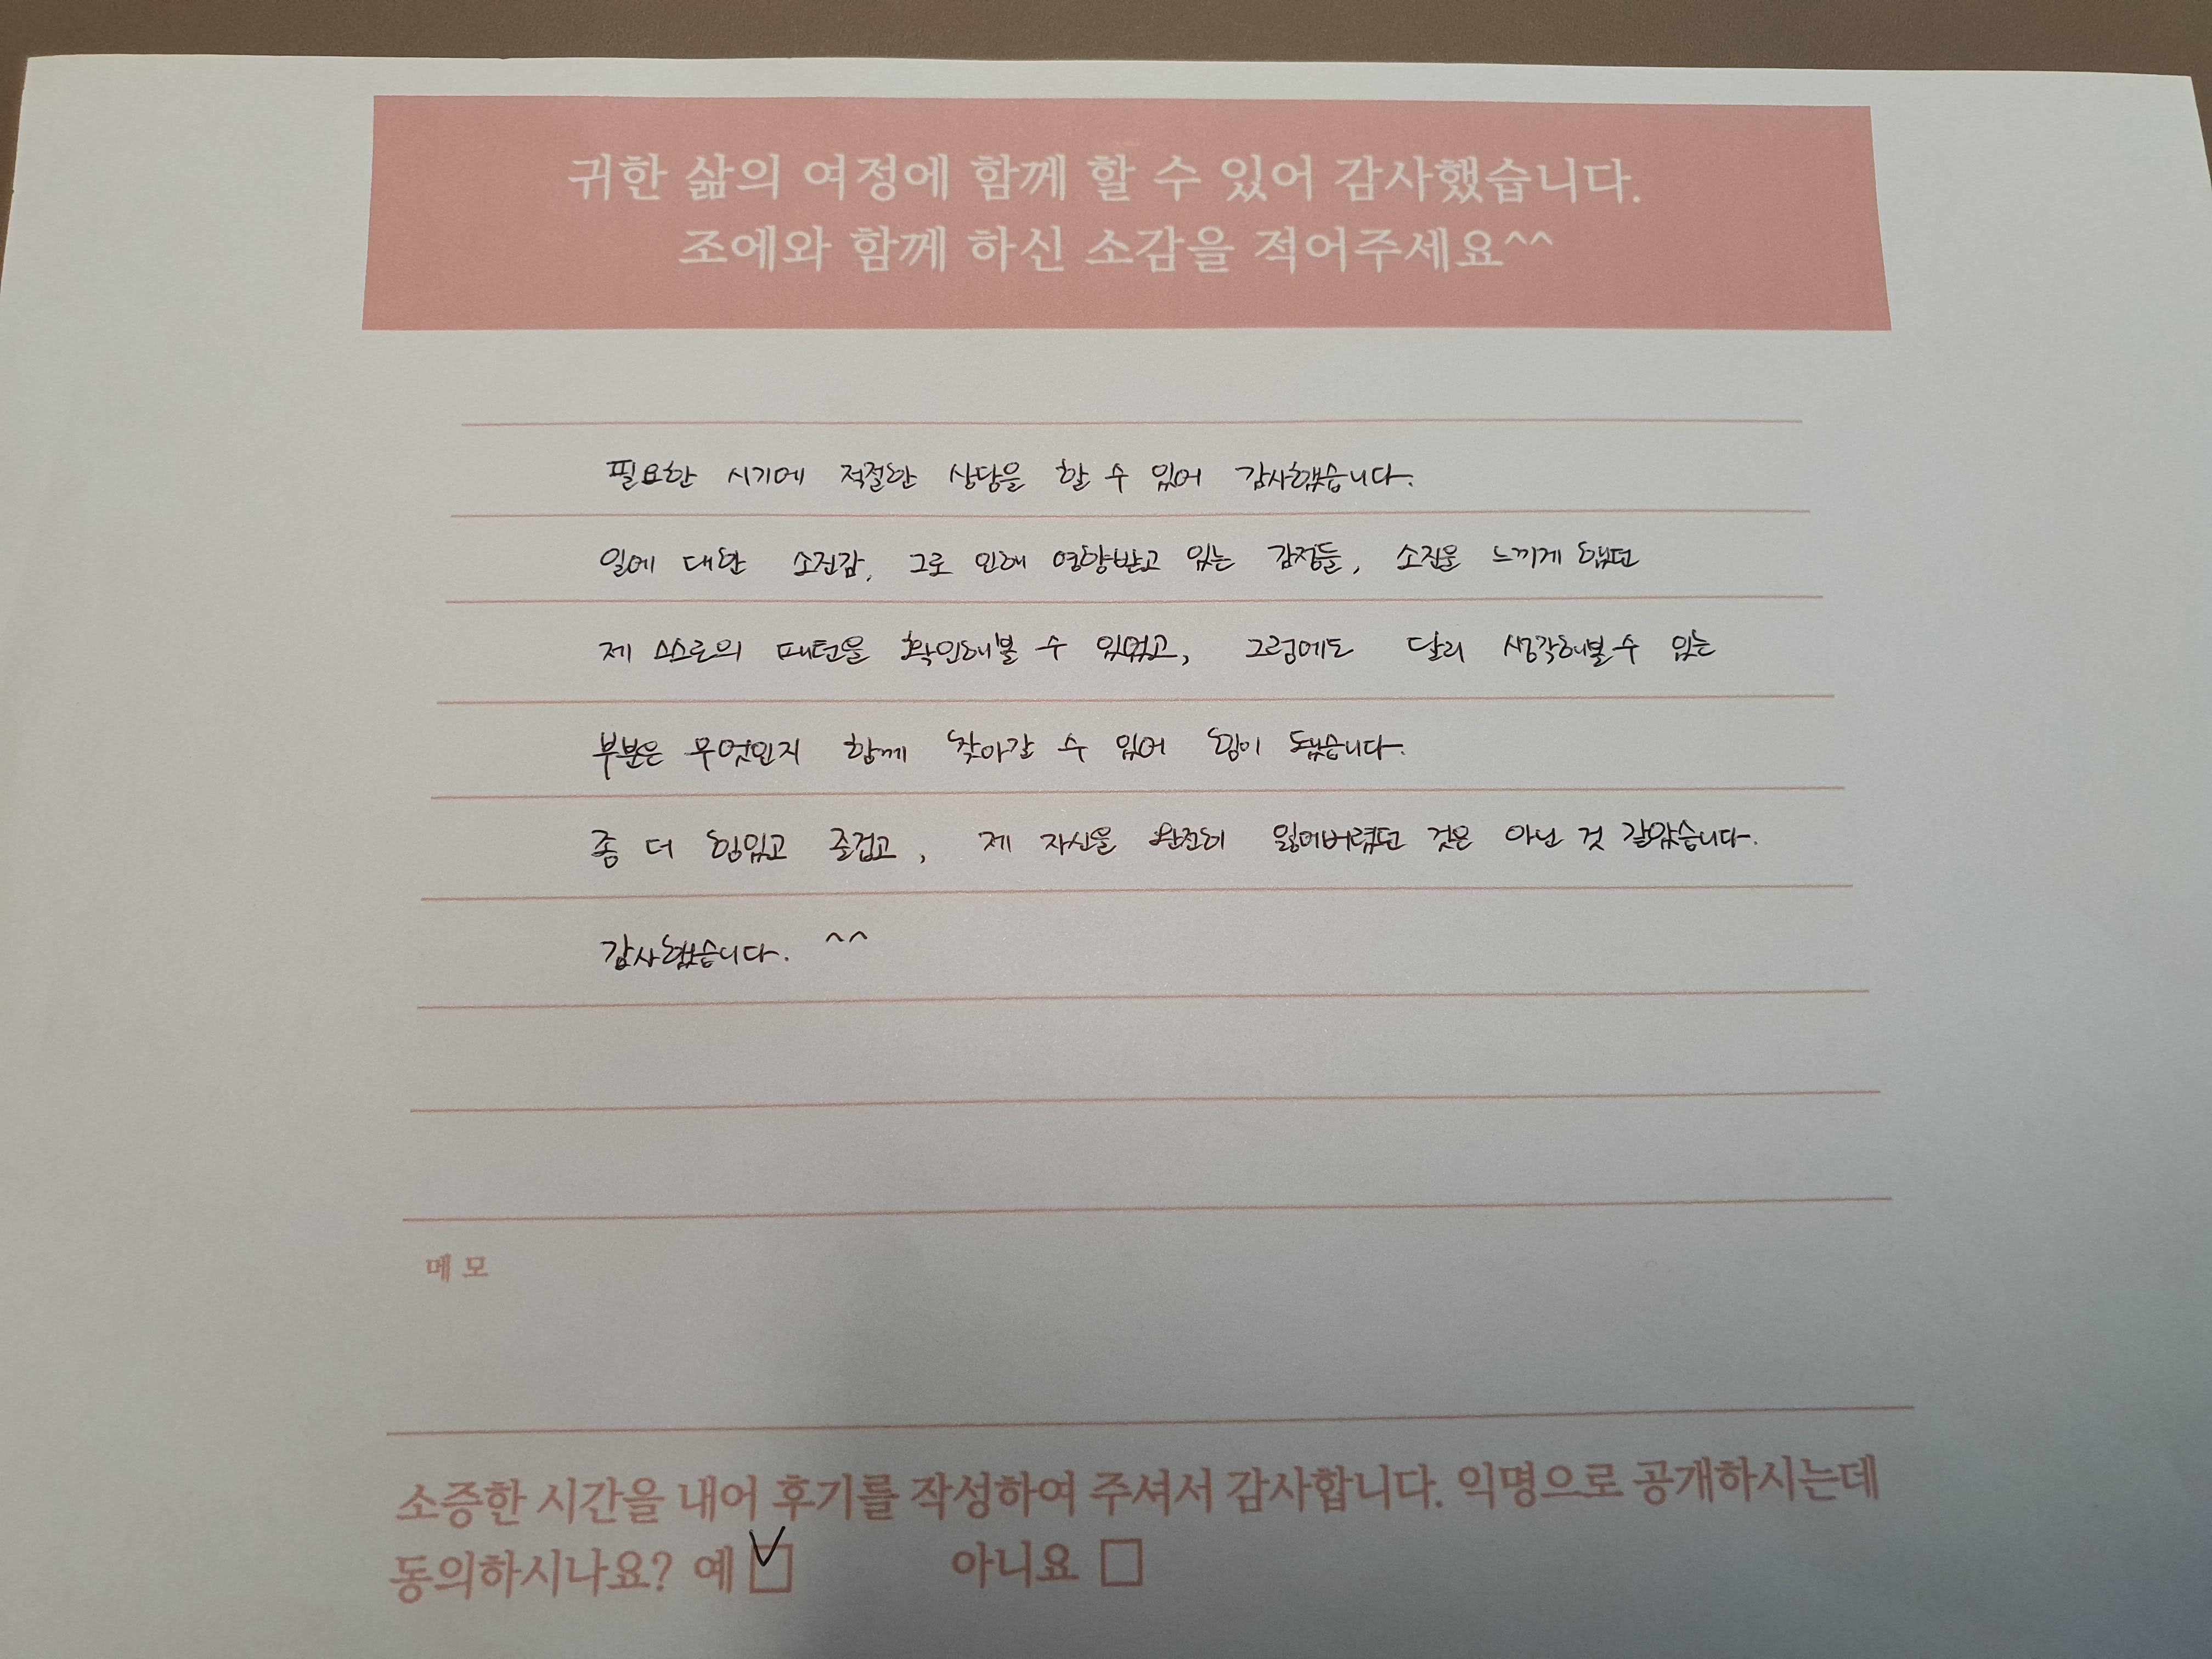 귀한 삶의 여정에 함께 할 수 있어 감사했습니다.
조에와 함께 하신 소감을 적어주세요^^
필요한 시기에 적절한 상담을 할 수 있어 감사했습니다.
일에 대한 소진감, 그로 인해 영향받고 있는 감정들, 소진을 느끼게 했던
제 스스로의 패턴을 확인해볼 수 있었고, 그럼에도 달리 생각해볼 수 있는
부분은 무엇인지 함께 찾아갈 수 있어 힘이 됐습니다.
좀 더 힘있고 즐겁고, 제 자신을 완전히 잃어버렸던 것은 아닌 것 같았습니다.
감사했습니다. ^^
메모
소중한 시간을 내어 후기를 작성하여 주셔서 감사합니다. 익명으로 공개하시는데
동의하시나요? 예 ☑ 아니요 □